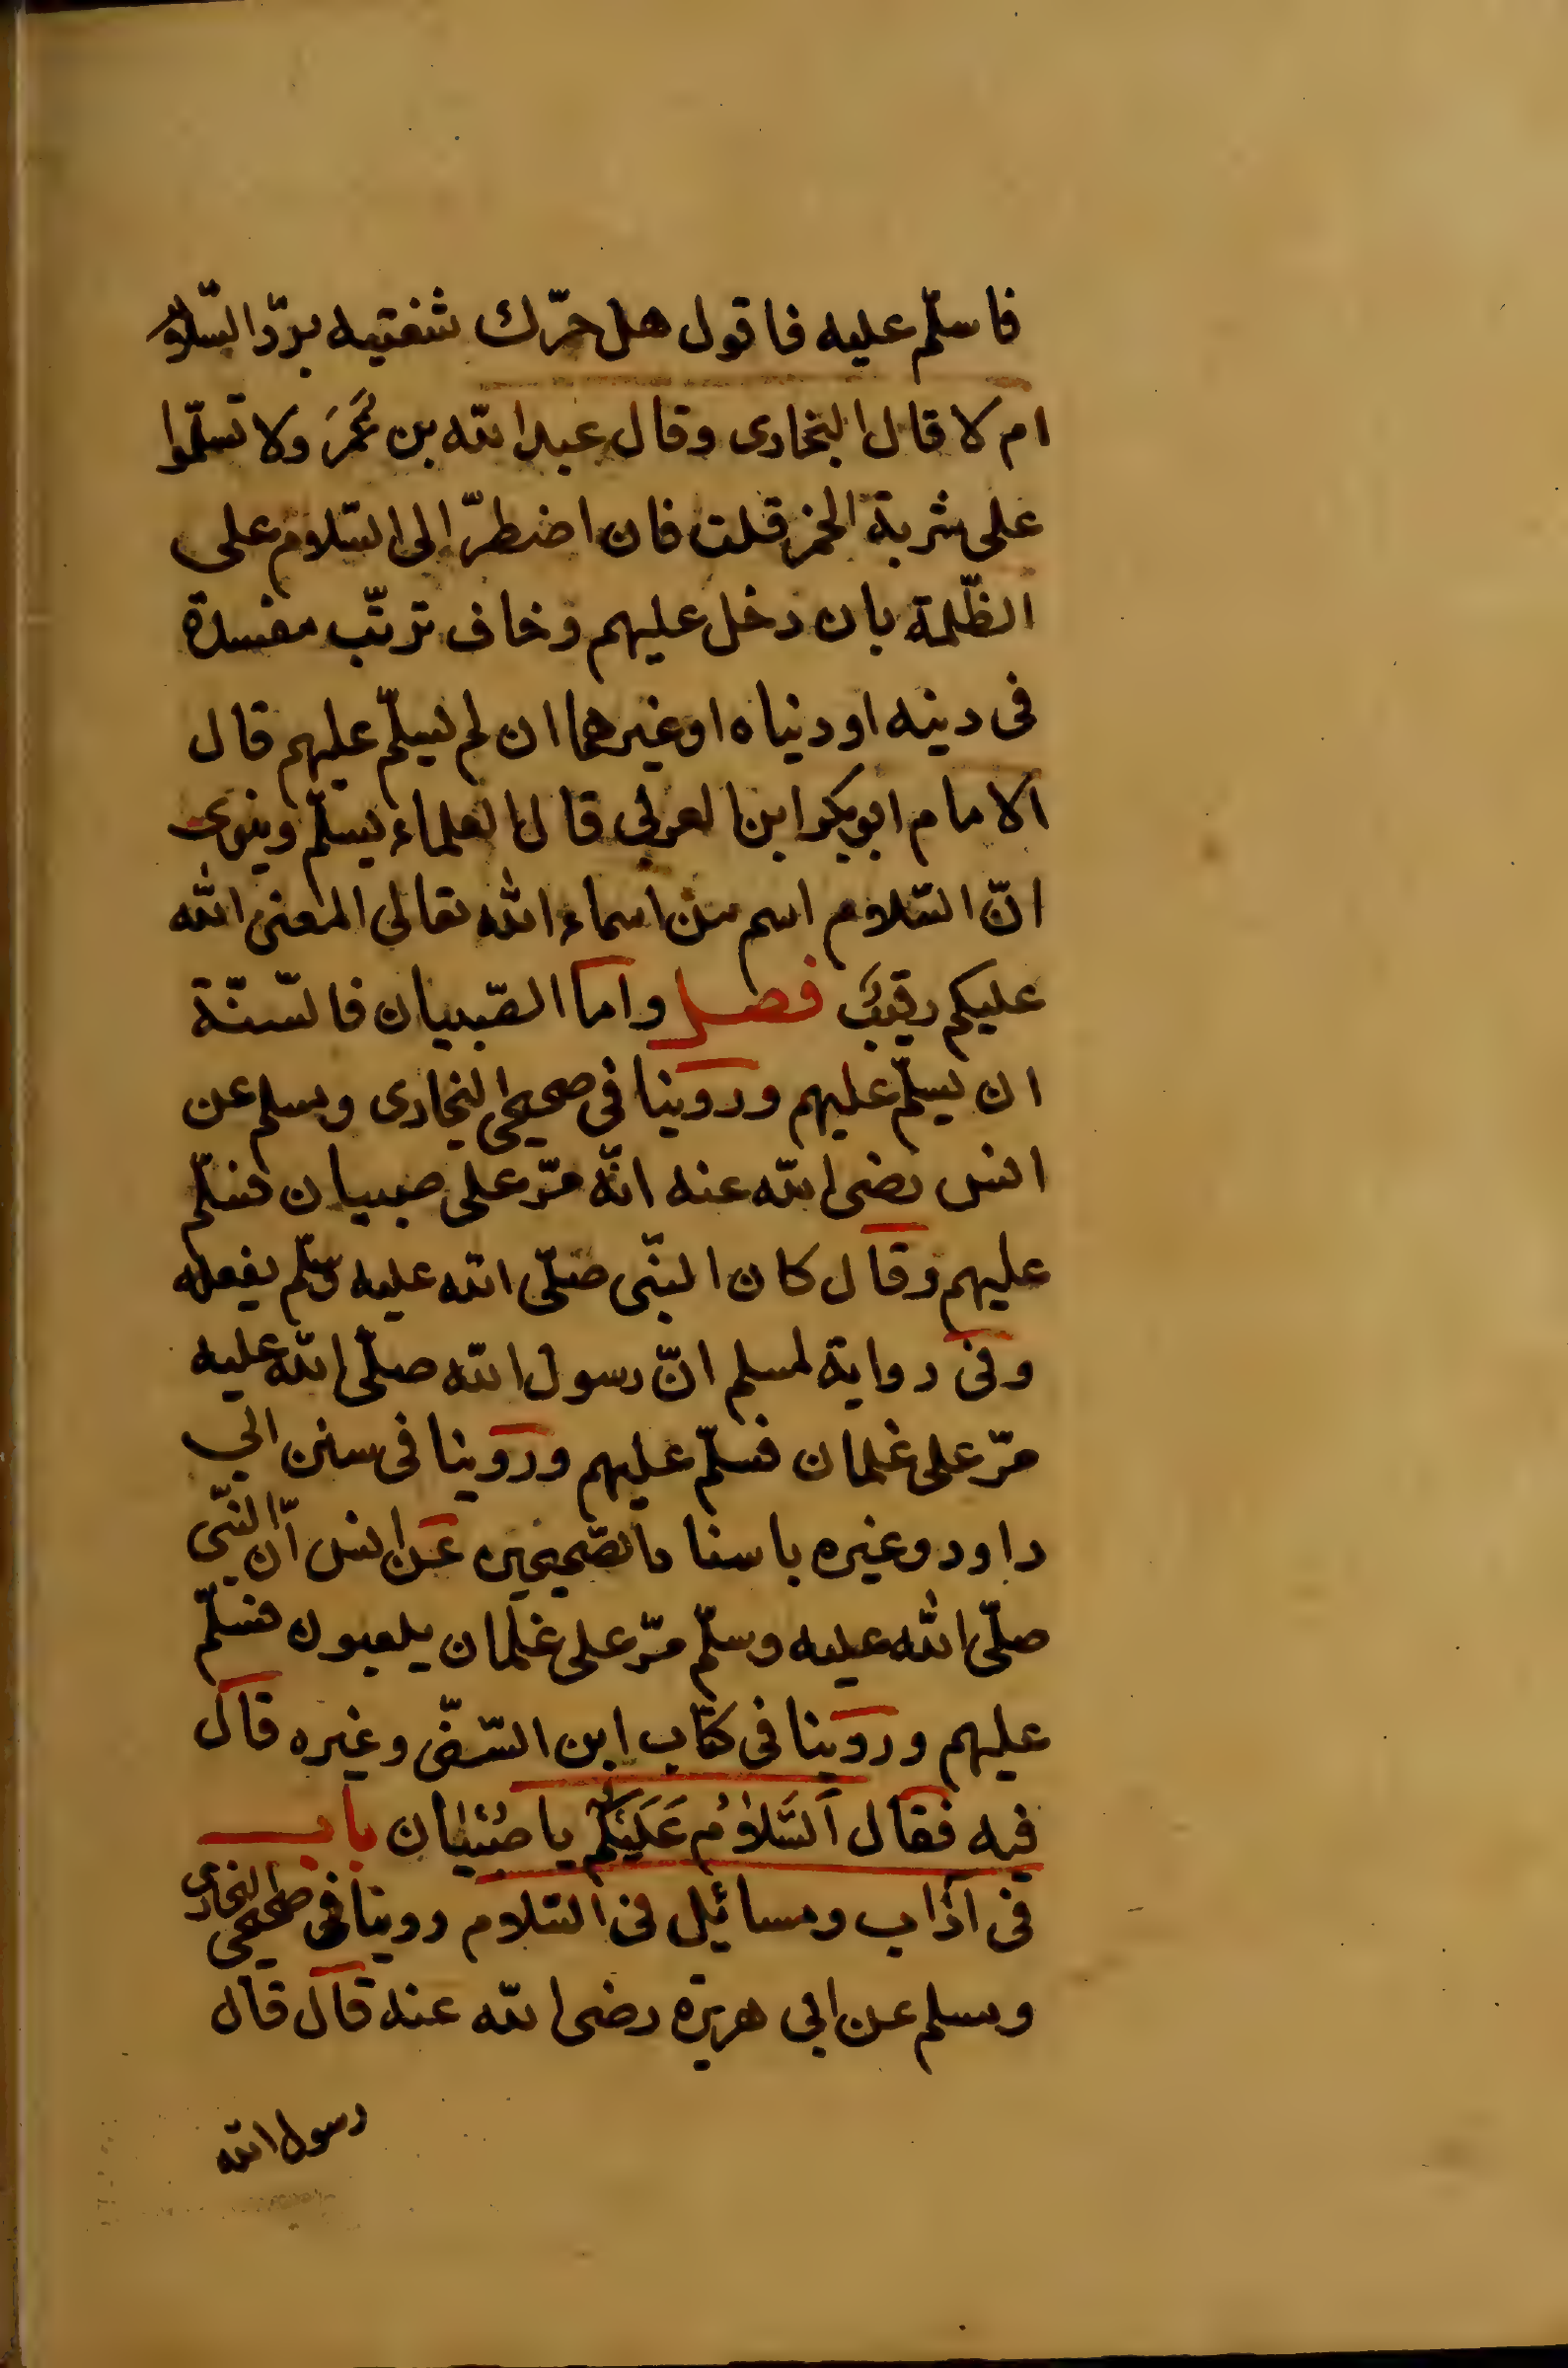 فاسلّم عليه فاقول هل حرّك شفتيه بردّ السّلام
ام لا قال البخارى وقال عبد الله بن عُمَرَ ولا تسلّموا
على شربة الخمر قلت فان اضطرّ الى السّلام على
الظّلمة بان دخل عليهم وخاف ترتّب مفسدة
فى دينه او دنياه او غيرهما ان لم يسلّم عليهم قال
الامام ابو بكر ابن العربى قال العلماء يسلّم وينوى
انّ السّلام اسم من اسماء الله تعالى المعنى الله
عليكم رقيب فصل واما الصّبيان فالسّنّة
ان يسلّم عليهم وروينا فى صحيحى البخارى ومسلم عن
انس رضى الله عنه انّه مرّ على صبيان فسلّم
عليهم وقال كان النبّى صلّى الله عليه وسلّم يفعله
وفى رواية لمسلم انّ رسول الله صلّى الله عليه
مرّ على غلمان فسلّم عليهم وروينا فى سنن ابى
داود وغيره باسناد الصّحيحين عن انس انّ النبّى
صلّى الله عليه وسلّم مرّ على غلمان يلعبون فسلّم
عليهم وروينا فى كتاب ابن السّنّى وغيره قال
فيه فقال اَلسَّلَامُ عَلَيْكُمْ يا صبْيَان باب
فى آداب ومسائيل فى السّلام روينا فى صحيحى البخارى
ومسلم عن ابى هريرة رضى الله عنه قال قال
رسول الله